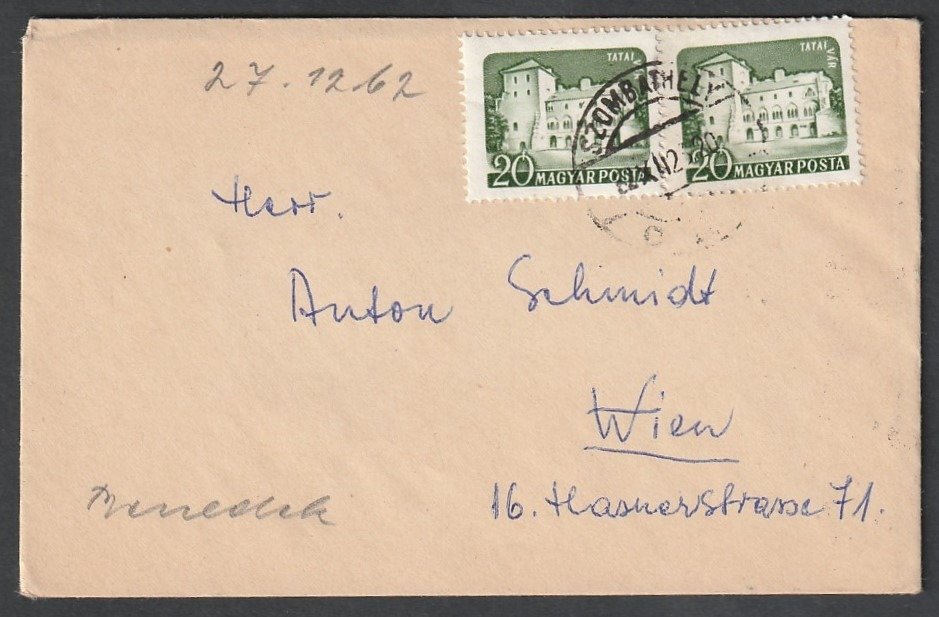 27.1262
TATAI VÁR
20 MAGYAR POSTA
TATAI VÁR
20 MAGYAR POSTA
SZOMBATHELY
Herr.
Anton Schmidt
Wien
16. Hasnerstrasse 71.
Benedek